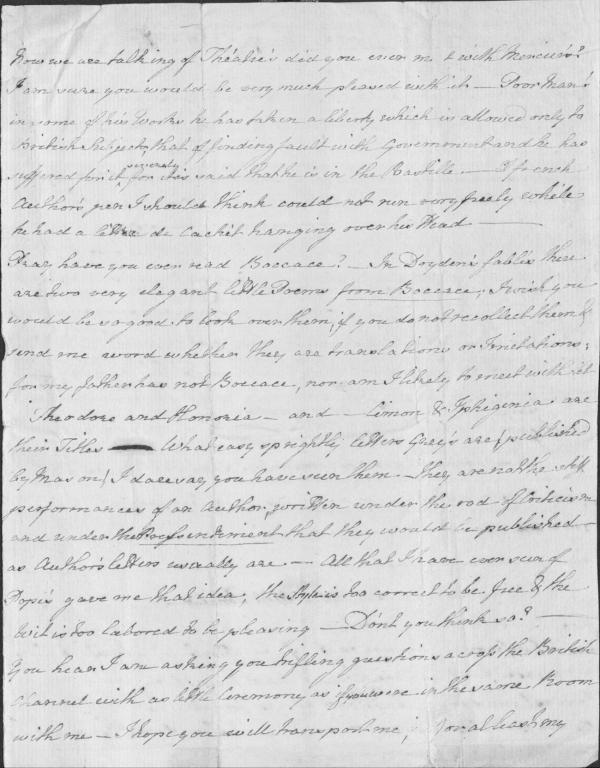 Now we are talking of Théatre's did you ever me t with Mercier's?
I am sure you would be very much pleased with it — Poor Man!
in some of his Works he has taken a liberty which is allowed only to
British Subjects, that of finding fault with Government and he has
suffered for it severely for it is said that he is in the Bastille. — A french
Author's pen I should think could not run very freely while
he had a lettre de Cachét hanging over his Head —
Pray have you ever read Boccace? — In Dryden's fables there
are two very elegant little Poems from Boccace; I wish you
would be so good to look over them, if you do not recollect them &
send me word whether they are translations or Imitations;
for my father has not Boccace, nor am I likely to meet with it
Theodore and Honoria — and — Cimon & Iphiginia are
their Titles — What easy sprightly letters Grey's are (published
by Mason) I dare say you have seen them — they are not the stiff
performances of an Author, written under the rod of Criticism
and under the Presentiment that they would be published —
as Author's letters usually are — All that I have ever seen of
Pope's gave me that idea, the Style is too correct to be free & the
Wit is too labored to be pleasing — Don't you think so? —
You hear I am asking you trifling questions across the British
Channel with as little Ceremony as if you were in the same Room
with me — I hope you will transport me, or at least my